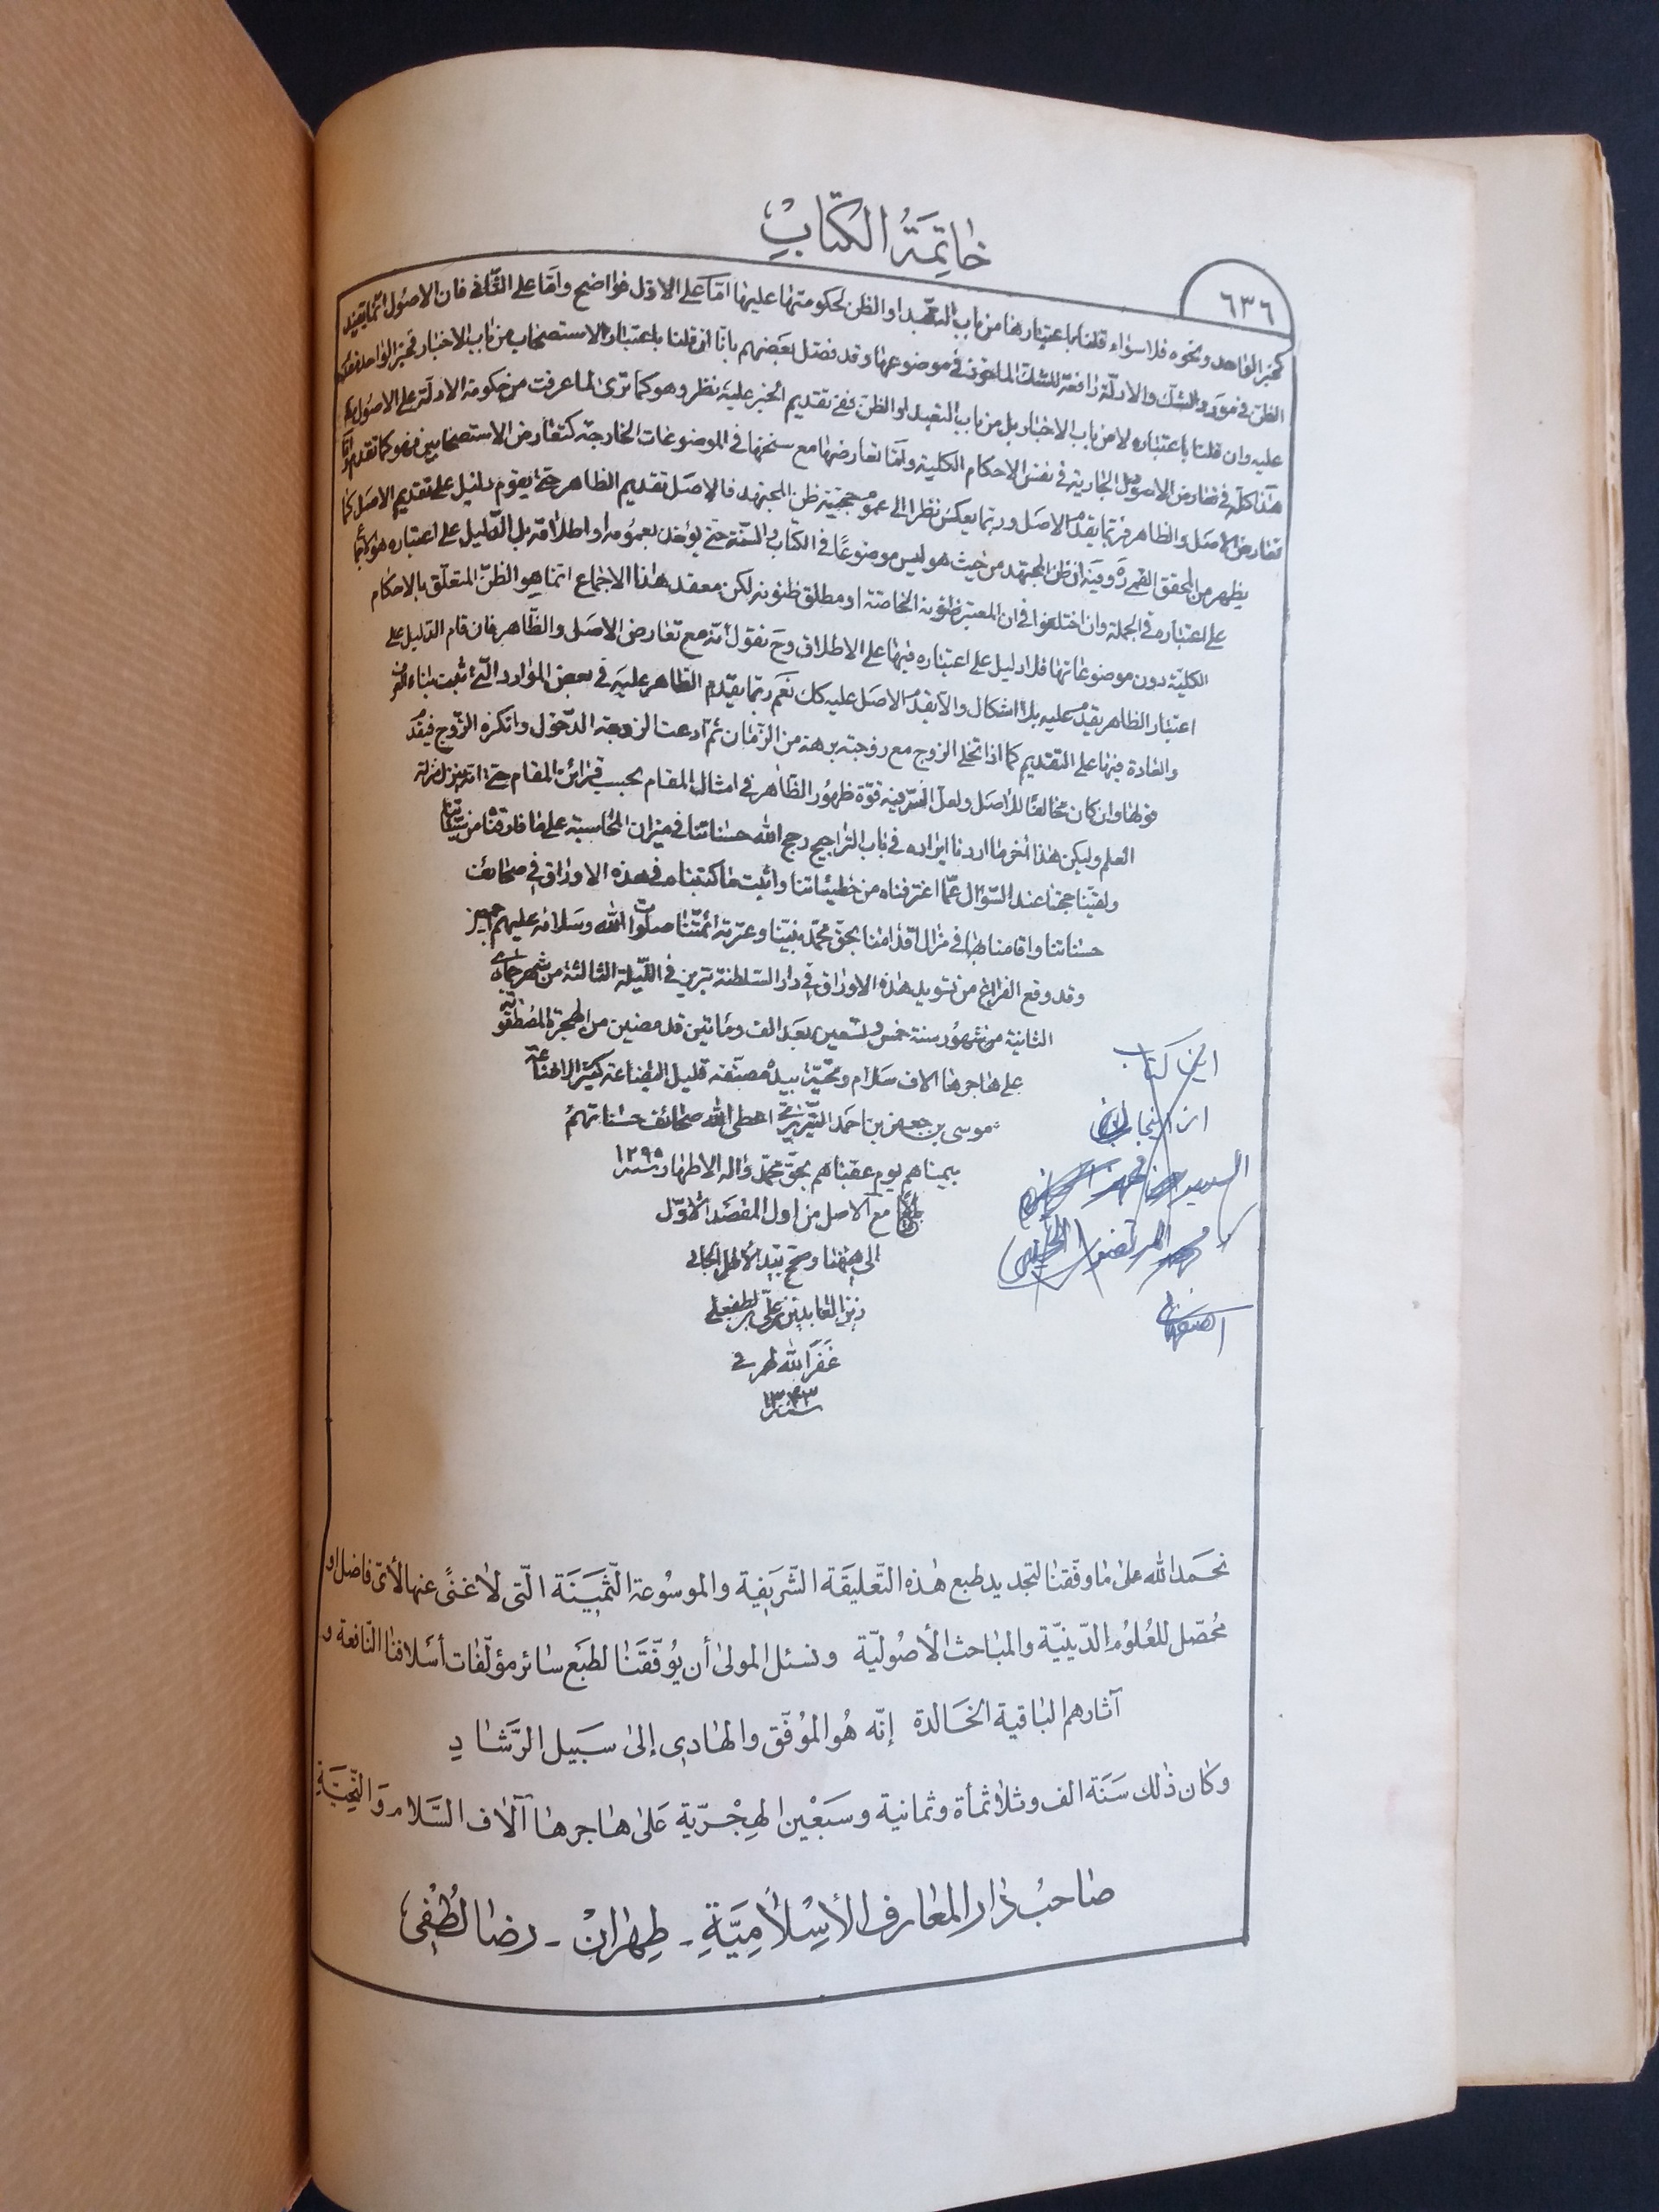 خاتمة الكتاب
٦٣٦
كخبر الواحد ونحوه فلا سواء قلنا باعتبارها من باب التعبد او الظن لحكومتها عليها اما على الاول فواضح واما على الثانى فان الاصول انما يفيد
الظن فى مورد الشك والادلة رافعة للشك الماخوذ فى موضوعها وقد فصل بعضهم بانا ان قلنا باعتبار الاستصحاب من باب الاخبار فخبر الواحد مقدم
عليه وان قلنا باعتباره لا من باب الاخبار بل من باب التعبد او الظن ففى تقديم الخبر عليه نظر وهو كما ترى لما عرفت من حكومة الادلة على الاصول
هذا كله فى تعارض الاصول الجارية فى نفس الاحكام الكلية واما تعارضها مع سنخها فى الموضوعات الخارجة كتعارض الاستصحابين فهو كما تقدم واما
تعارض الاصل والظاهر فربما يقدم الاصل وربما يعكس نظرا الى عموم حجية ظن المجتهد فالاصل تقديم الظاهر حتى يقوم دليل على تقديم الاصل كما
يظهر من المحقق القمى ره وفيه ان ظن المجتهد من حيث هو ليس موضوعًا فى الكتاب والسنة حتى يؤخذ بعمومه او اطلاقه بل الدليل على اعتباره هو الاجماع
على اعتباره فى الجملة وان اختلفوا فى ان المعتبر ظنونه الخاصة او مطلق ظنونه لكن معقد هذا الاجماع انما هو الظن المتعلق بالاحكام
الكلية دون موضوعاتها فلا دليل على اعتباره فيها على الاطلاق وح نقول انه مع تعارض الاصل والظاهر فان قام الدليل على
اعتبار الظاهر يقدم عليه بلا اشكال والا يقدم الاصل عليه كك نعم ربما يقدم الظاهر عليه فى بعض الموارد التى ثبت بناء العرف
والعادة فيها على التقديم كما اذا تخلى الزوج مع زوجته برهة من الزمان ثم ادعت الزوجة الدخول وانكره الزوج فيقدم
قولها وان كان مخالفًا للاصل ولعل السر فيه قوة ظهور الظاهر فى امثال المقام بحسب قرائن المقام حتى انه ينزل منزلة
العلم وليكن هذا اخر ما اردنا ايراده فى باب التراجيح رجح الله حسناتنا فى ميزان المحاسبة على ما قارفناه من سيئاتنا
ولقننا حجتنا عند السؤال عما اغترفناه من خطيئاتنا واثبت ما كتبناه فى هذه الاوراق فى صحائف
حسناتنا واقامنا بها فى مزال اقدامنا بحق محمد نبينا وعترته ائمتنا صلوات الله وسلامه عليهم اجمعين
وقد وقع الفراغ من تسويد هذه الاوراق فى دار السلطنة تبريز فى الليلة الثالثة من شهر جمادى
الثانية من شهور سنة خمس وتسعين بعد الف ومأتين قد مضين من الهجرة المصطفوية
على هاجرها الاف سلام وتحية بيد مصنفه قليل البضاعة كثير الاضاعة
موسى بن جعفر بن احمد التبريزى اعطى الله صحائف حسناتهم
بيمناهم يوم عقباهم بحق محمد واله الاطهار سنة ١٢٩٥
مع الاصل من اول المقصد الاول
الى هيهنا وصح بيد الاقل الجانى
زين العابدين بن على
غفر الله لهم فى
سنة ١٣٤٣
اين كتاب
از اينجانب
السيد
محمد المرتضوى
نحمد الله على ما وفقنا لتجديد طبع هذه التعليقة الشريفية والموسوعة الثمينة التى لا غنًى عنها لأىّ فاضل او
محصّل للعلوم الدّينيّة والمباحث الأصوليّة ونسئل المولى أن يوفّقنا لطبع سائر مؤلّفات أسلافنا النافعة و
آثارهم الباقية الخالدة إنّه هو الموفّق والهادى إلى سبيل الرّشاد
وكان ذلك سنة الف وثلاثمأة وثمانية وسبعين الهجريّة على هاجرها آلاف السّلام والتّحيّة
صاحب دار المعارف الأسلاميّة - طهران - رضا لطفى